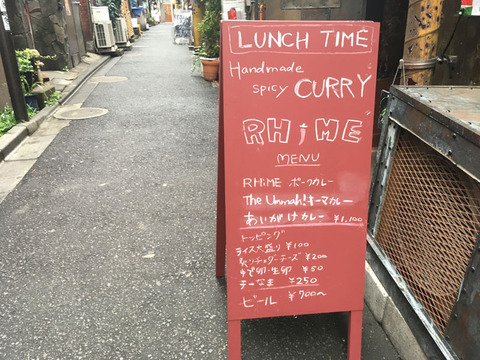 LUNCH TIME
Handmade
spicy CURRY
RHiME
MENU
RHiME ポークカレー
The Ummah!キーマカレー
あいがけカレー ¥1,100
トッピング
ライス大盛り ¥100
チェダーチーズ ¥200
ゆで卵・生卵 ¥50
チーたま ¥250
ビール ¥700〜